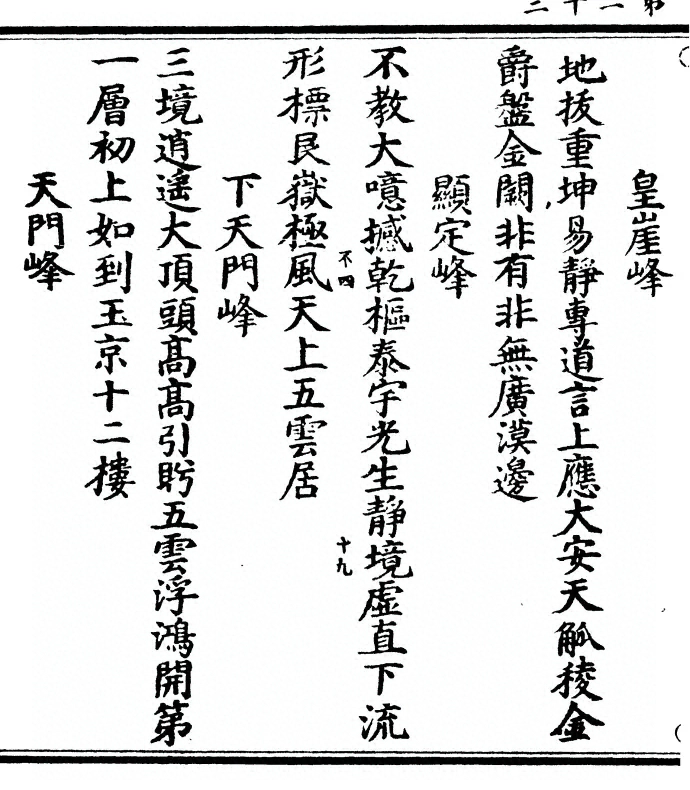 皇崖峰
地拔重坤易靜專道言上應大安天觚稜金
爵盤金闕非有非無廣漠邊
顯定峰
不教大噫撼乾樞泰宇光生靜境虛直下流
形標艮嶽極風天上五雲居
不四
十九
下天門峰
三境逍遙大頂頭髙髙引盻五雲浮鴻開第
一層初上如到玉京十二樓
天門峰